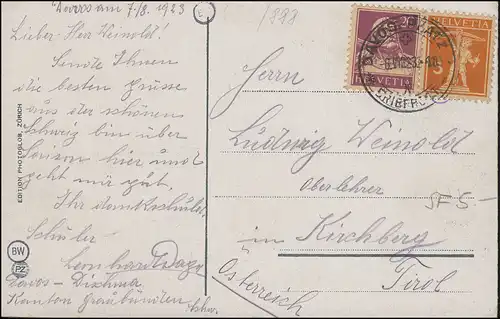 Davos am 7/8. 1923
Lieber Herr Weinold!
Sende Ihnen
die besten Grüsse
aus der schönen
Schweiz bin über
Saison hier und
geht mir gut.
Ihr dankschuld.
Schüler
Leonhard
Davos - Dischma
Kanton Graubünden
Schw.
EDITION PHOTOGLOB, ZÜRICH
BW
PZ
1888
HELVETIA
20
HELVETIA
5
DAVOS PLATZ
Herrn
Ludwig Weinold
Oberlehrer
in Kirchberg
Tirol
Österreich